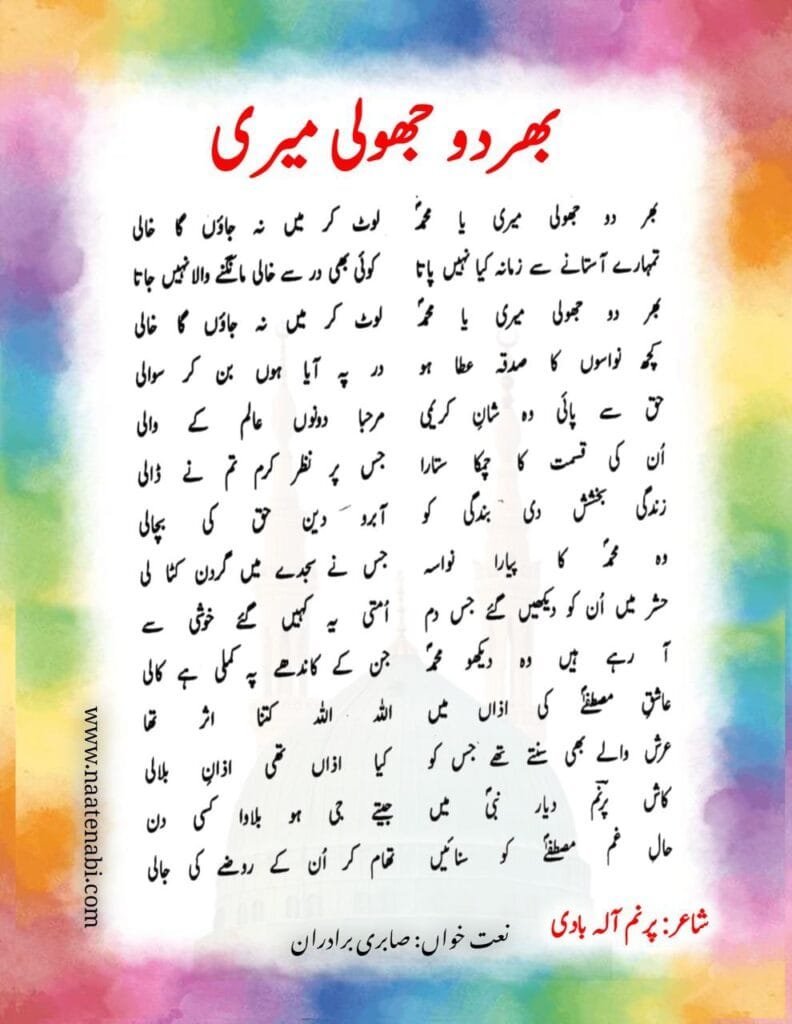 بھر دو جھولی میری
بھر دو جھولی میری یا محمدؐ لوٹ کر میں نہ جاؤں گا خالی
تمہارے آستانے سے زمانہ کیا نہیں پاتا کوئی بھی در سے خالی مانگنے والا نہیں جاتا
بھر دو جھولی میری یا محمدؐ لوٹ کر میں نہ جاؤں گا خالی
کچھ نواسوں کا صدقہ عطا ہو در پہ آیا ہوں بن کر سوالی
حق سے پائی وہ شانِ کریمی مرحبا دونوں عالم کے والی
اُن کی قسمت کا چمکا ستارا جس پر نظر کرم تم نے ڈالی
زندگی بخشش دی بندگی کو آبرو دین حق کی بچالی
وہ محمدؐ کا پیارا نواسہ جس نے سجدے میں گردن کٹا لی
حشر میں اُن کو دیکھیں گے جس دم اُمتی یہ کہیں گے خوشی سے
آ رہے ہیں وہ دیکھو محمدؐ جن کے کاندھے پہ کملی ہے کالی
عاشقِ مصطفےٰؐ کی اذاں میں اللہ اللہ کتنا اثر تھا
عرش والے بھی سنتے تھے جس کو کیا اذاں تھی اذانِ بلالی
کاش پرنم دیار نبیؐ میں جیتے جی ہو بلاوا کسی دن
حالِ غم مصطفےٰؐ کو سنائیں تھام کر اُن کے روضے کی جالی
شاعر: پرنم آلہ بادی
نعت خواں: صابری برادران
www.naatenabi.com